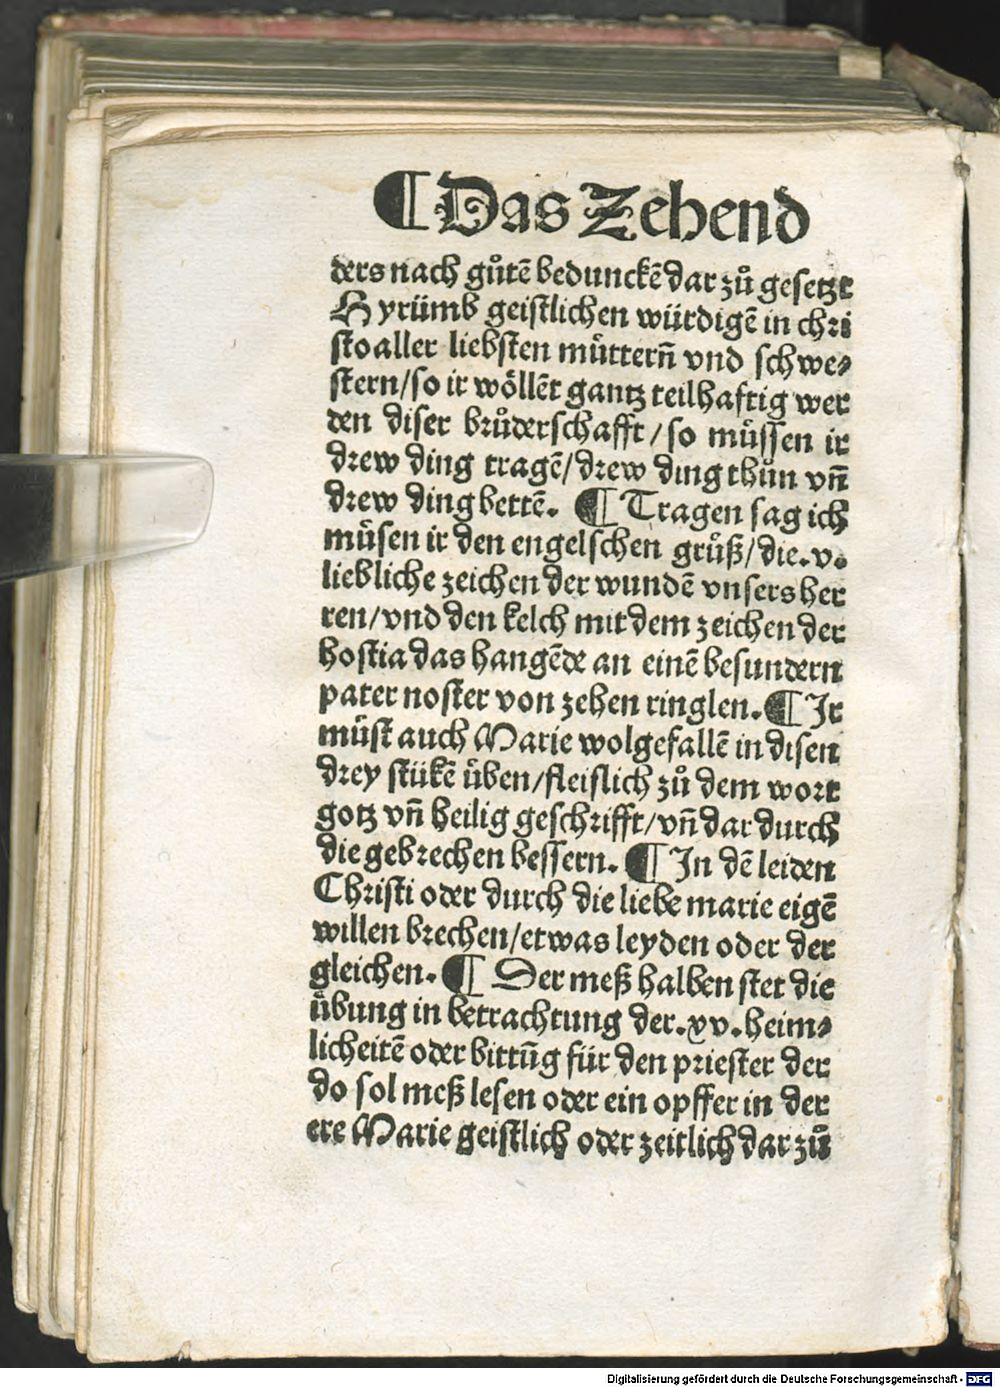 ¶ Das Zehend
ders nach gůtē beduncke͂ dar zů gesetzt
Hyrümb geistlichen würdigē in chri
sto aller liebsten mütterñ vnd schwe⸗
stern/so ir wöllēt gantz teilhaftig wer
den diser brůderschafft/so müssen ir
drew ding tragē/drew ding thůn vñ
drew ding bettē. ¶ Tragen sag ich
müsen ir den engelschen grůß/die.v.
liebliche zeichen der wundē vnsers her
ren/vnd den kelch mit dem zeichen der
hostia das hangēde an einē besundern
pater noster von zehen ringlen. ¶ Ir
müst auch Marie wolgefallē in disen
drey stükē üben/fleislich zů dem wort
gotz vñ heilig geschrifft/vñ dar durch
die gebrechen bessern. ¶ In dē leiden
Christi oder durch die liebe marie eigē
willen brechen/etwas leyden oder der
gleichen. ¶ Der meß halben stet die
übung in betrachtung der.xv.heim⸗
licheitē oder bittūg für den priester der
do sol meß lesen oder ein opffer in der
ere Marie geistlich oder zeitlich dar zů
Digitalisierung gefördert durch die Deutsche Forschungsgemeinschaft - DFG